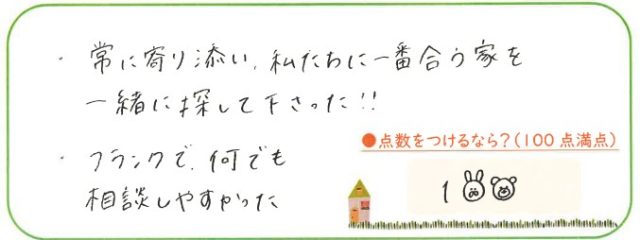 ・常に寄り添い、私たちに一番合う家を
一緒に探して下さった!!
・フランクで、何でも
相談しやすかった
●点数をつけるなら?(100点満点)
1